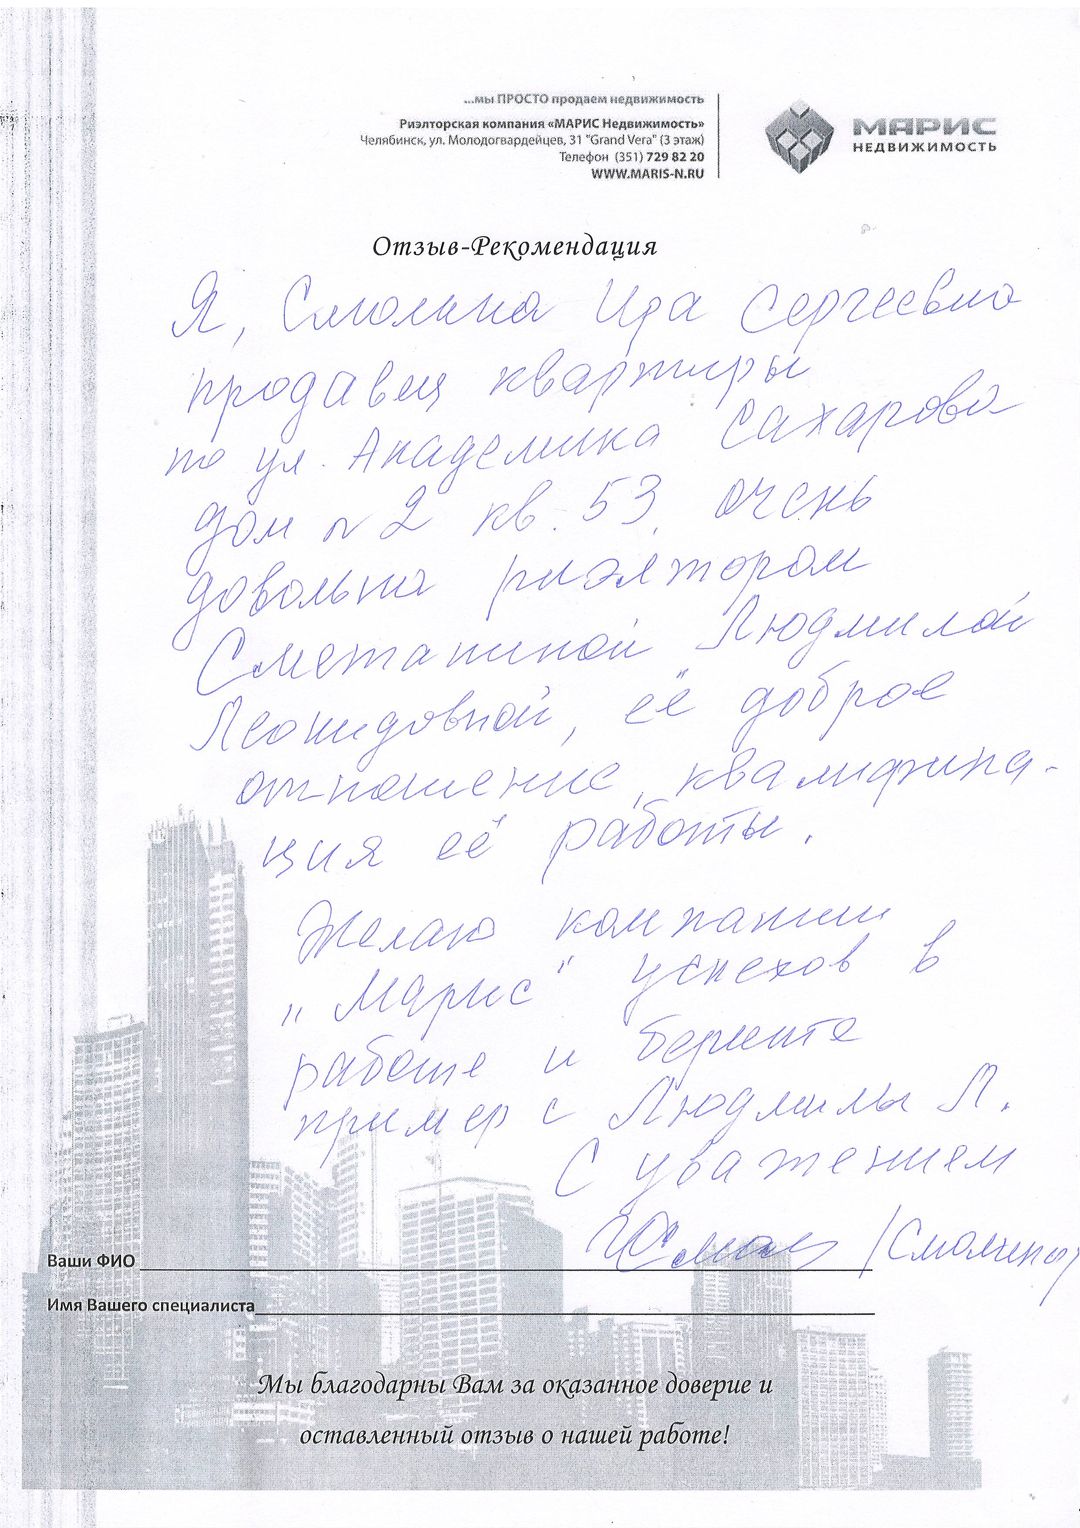 ...мы ПРОСТО продаем недвижимость
Риэлторская компания «МАРИС Недвижимость»
Челябинск, ул. Молодогвардейцев, 31 "Grand Vera" (3 этаж)
Телефон (351) 729 82 20
WWW.MARIS-N.RU
МАРИС
НЕДВИЖИМОСТЬ
Отзыв-Рекомендация
Я, Смолина Ида Сергеевна
продавец квартиры
по ул. Академика Сахарова
дом N 2 кв. 53, очень
довольна риэлтором
Сметаниной Людмилой
Леонидовной, её доброе
отношение, квалифика-
ция её работы.
Желаю компании
„Марис" успехов в
работе и берите
пример с Людмилы Л.
С уважением
Ваши ФИО
Имя Вашего специалиста
Мы благодарны Вам за оказанное доверие и
оставленный отзыв о нашей работе!